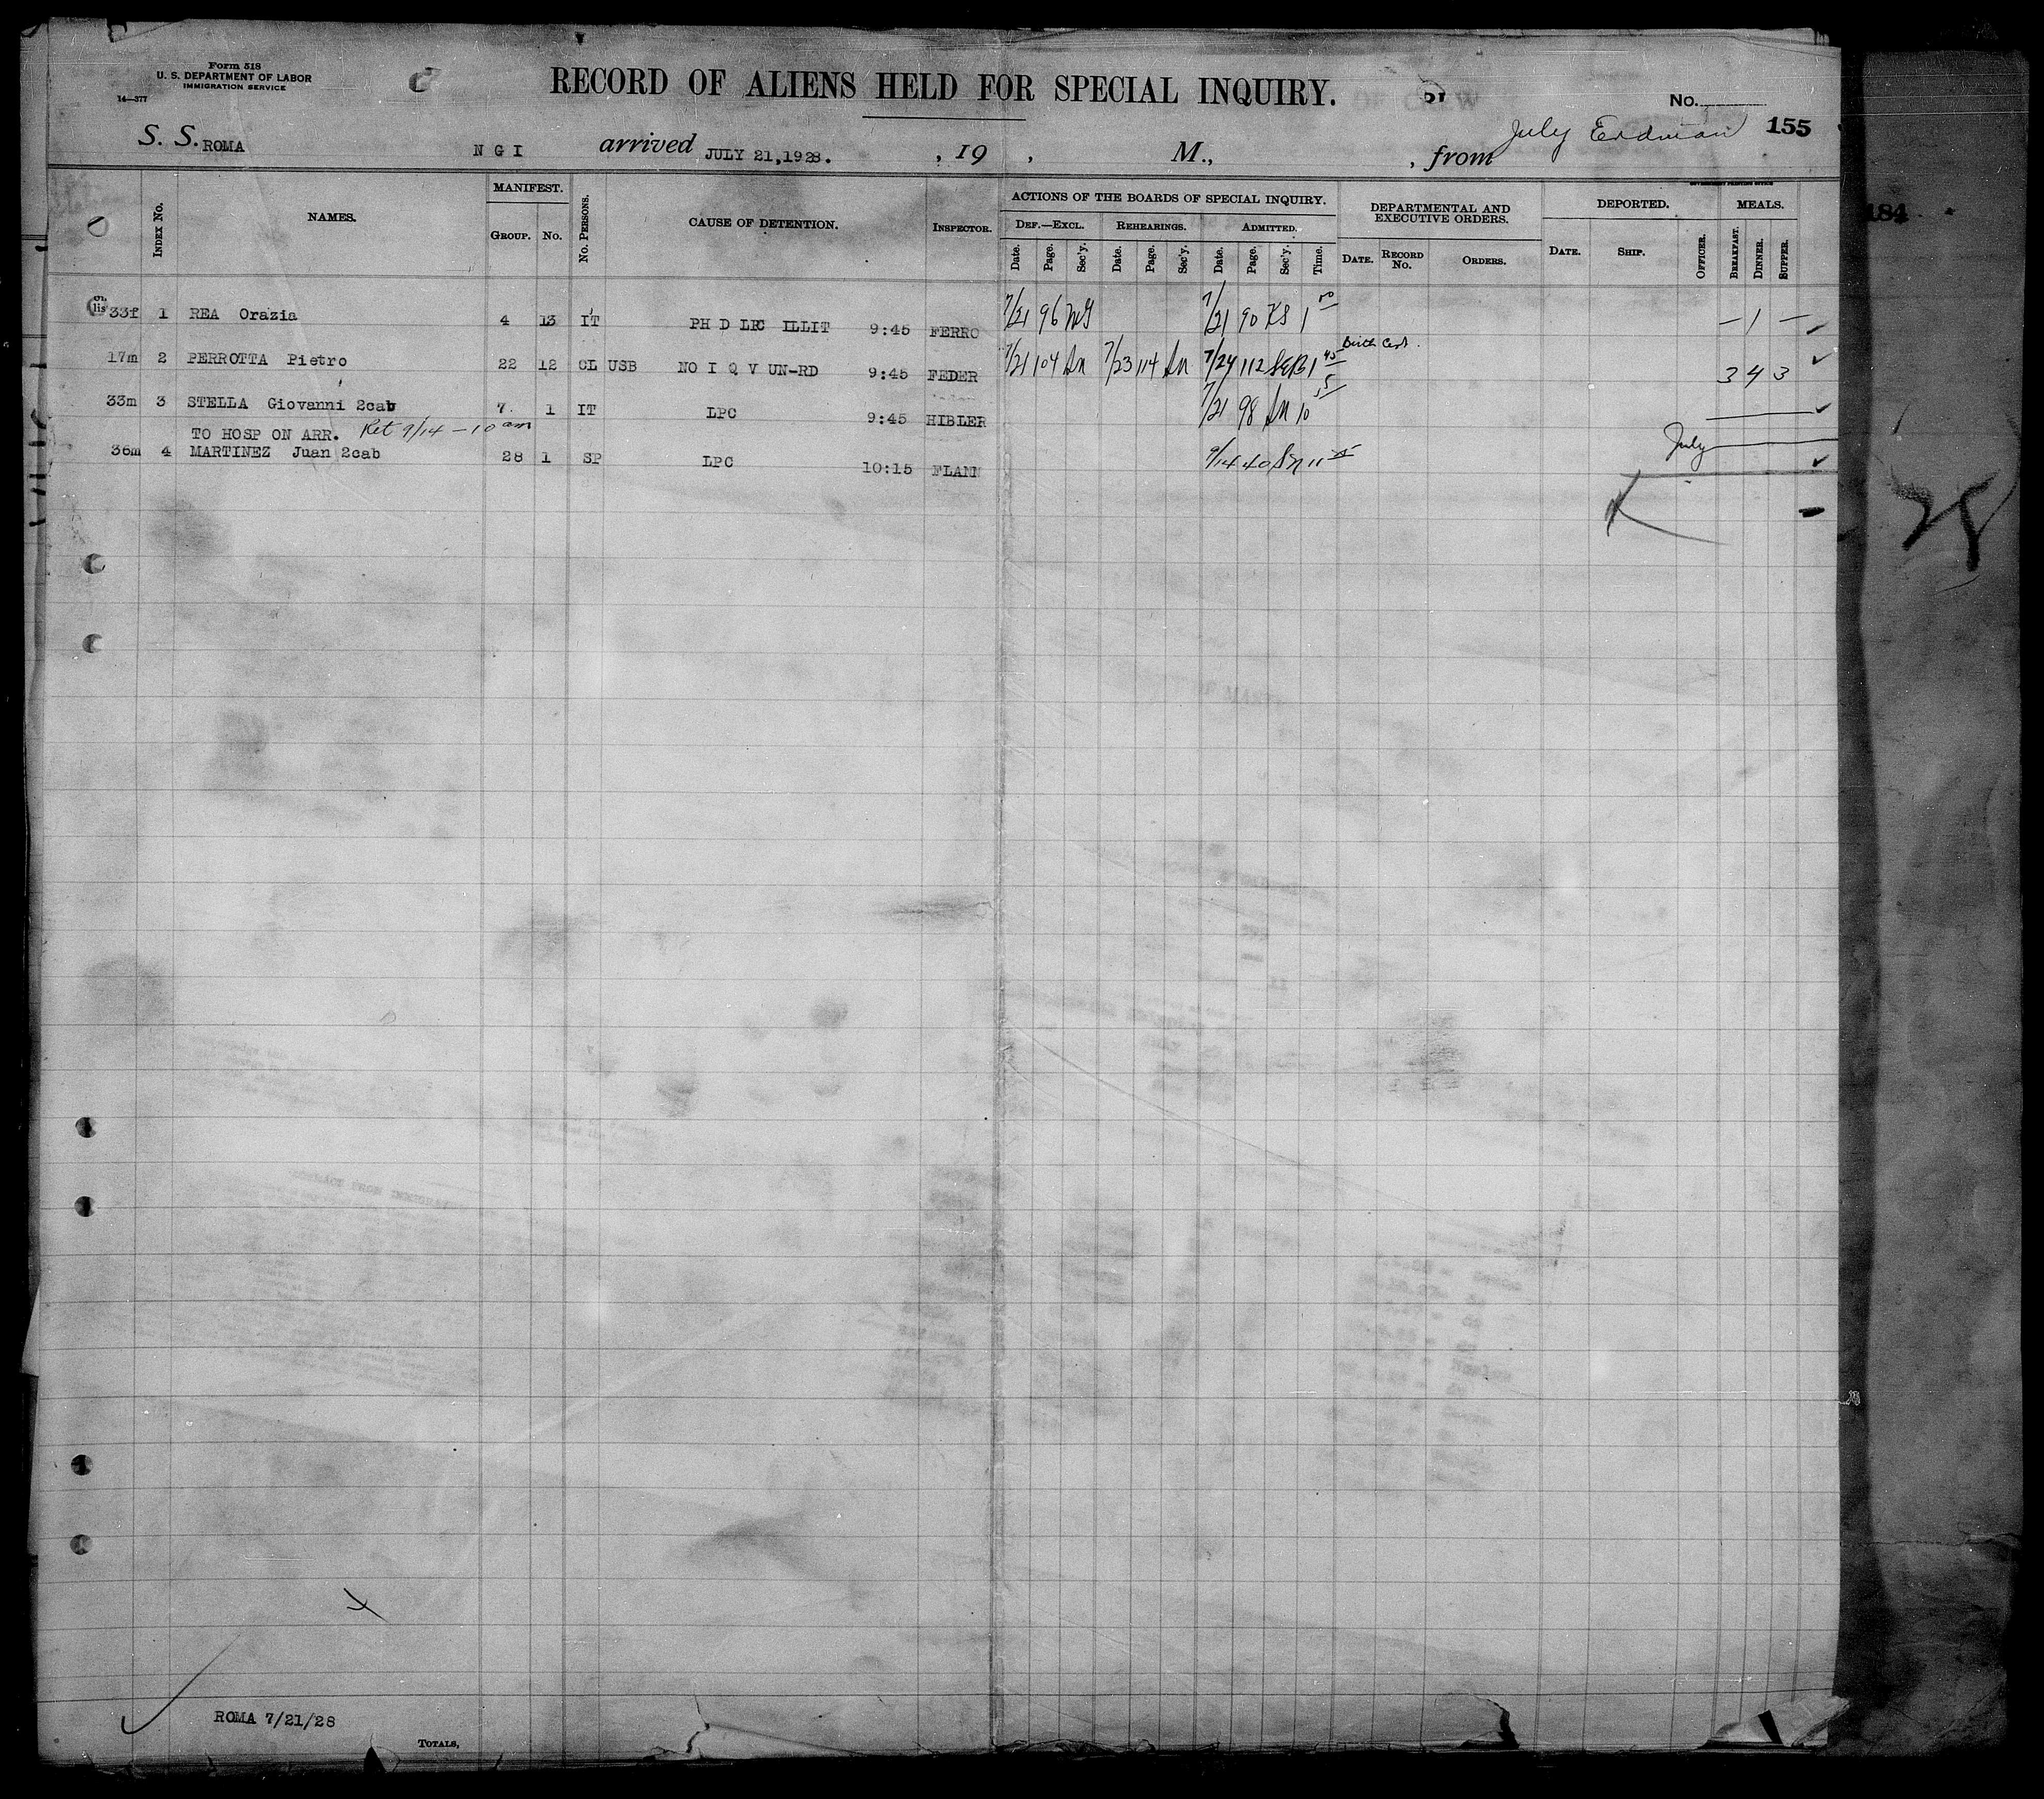 Form 518
U. S. DEPARTMENT OF LABOR
IMMIGRATION SERVICE
14—377
RECORD OF ALIENS HELD FOR SPECIAL INQUIRY.
No.
155
S. S. ROMA N G I arrived JULY 21,1928. , 19 , M., , from July Erdman
INDEX No. NAMES. MANIFEST. GROUP. No. No. PERSONS. CAUSE OF DETENTION. INSPECTOR. ACTIONS OF THE BOARDS OF SPECIAL INQUIRY. DEF.—EXCL. Date. Page. Sec'y. REHEARINGS. Date. Page. Sec'y. ADMITTED. Date. Page. Sec'y. Time. DEPARTMENTAL AND EXECUTIVE ORDERS. DATE. RECORD No. ORDERS. DEPORTED. DATE. SHIP. OFFICER. MEALS. BREAKFAST. DINNER. SUPPER.
184
33f 1 REA Orazia 4 13 IT PH D LPC ILLIT 9:45 FERRO 7/21 96 7/21 90 KS 1 00 — 1 —
Birth Cert.
17m 2 PERROTTA Pietro 22 12 CL USB NO I Q V UN-RD 9:45 FEDER 7/21 104 7/23 114 7/24 112 SEB 1 45 3 4 3
33m 3 STELLA Giovanni 2cab 7 1 IT LPC 9:45 HIBLER 7/21 98 10
TO HOSP ON ARR. Ret 9/14 — 10 am
July
36m 4 MARTINEZ Juan 2cab 28 1 SP LPC 10:15 FLANN 9/14 40 11
ROMA 7/21/28
TOTALS,